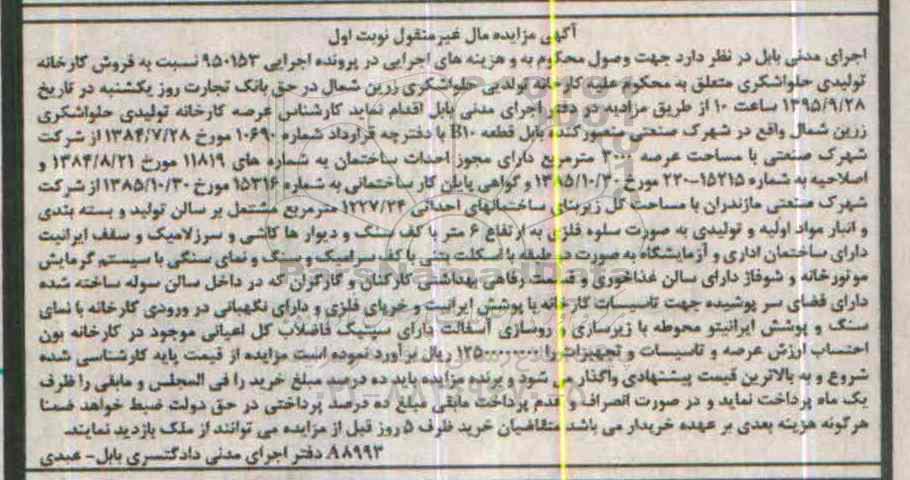 آگهی مزایده مال غیرمنقول نوبت اول
اجرای مدنی بابل در نظر دارد جهت وصول محکوم به و هزینه های اجرایی در پرونده اجرایی ۹۵۰۱۵۳ نسبت به فروش کارخانه
تولیدی حلواشکری متعلق به محکوم علیه کارخانه تولدیی حلواشکری زرین شمال در حق بانک تجارت روز یکشنبه در تاریخ
۱۳۹۵/۹/۲۸ ساعت ۱۰ از طریق مزایده در دفتر اجرای مدنی بابل اقدام نماید کارشناس عرصه کارخانه تولیدی حلواشکری
زرین شمال واقع در شهرک صنعتی منصورکنده بابل قطعه B۱۰ با دفترچه قرارداد شماره ۱۰۶۹۰ مورخ ۱۳۸۴/۷/۲۸ از شرکت
شهرک صنعتی با مساحت عرصه ۳۰۰۰ مترمربع دارای مجوز احداث ساختمان به شماره های ۱۱۸۱۹ مورخ ۱۳۸۴/۸/۲۱ و
اصلاحیه به شماره ۱۵۲۱۵-۲۲۰ مورخ ۱۳۸۵/۱۰/۳۰ و گواهی پایان کار ساختمانی به شماره ۱۵۳۱۶ مورخ ۱۳۸۵/۱۰/۳۰ از شرکت
شهرک صنعتی مازندران با مساحت کل زیربنای ساختمانهای احداثی ۱۲۲۷/۲۴ مترمربع مشتمل بر سالن تولید و بسته بندی
و انبار مواد اولیه و تولیدی به صورت سلوه فلزی به ارتفاع ۶ متر با کف سنگ و دیوار ها کاشی و سرزلامیک و سقف ایرانیت
دارای ساختمان اداری و آزمایشگاه به صورت دو طبقه با اسکلت بتنی با کف سرامیک و سنگ و نمای سنگی با سیستم گرمایش
موتورخانه و شوفاژ دارای سالن غذاخوری و قسمت رفاهی بهداشتی کارکنان و کارگران که در داخل سالن سوله ساخته شده
دارای فضای سر پوشیده جهت تاسیسات کارخانه با پوشش ایرانیت و خرپای فلزی و دارای نگهبانی در ورودی کارخانه با نمای
سنگ و پوشش ایرانیتو محوطه با زیرسازی و روسازی آسفالت دارای سپتیک فاضلاب کل اعیانی موجود در کارخانه بون
احتساب ارزش عرصه و تاسیسات و تجهیزات را ریال برآورد نموده است مزایده از قیمت پایه کارشناسی شده
شروع و به بالاترین قیمت پیشنهادی واگذار می شود و برنده مزایده باید ده درصد مبلغ خرید را فی المجلس و مابقی را ظرف
یک ماه پرداخت نماید و در صورت انصراف و عدم پرداخت مابقی مبلغ ده درصد پرداختی در حق دولت ضبط خواهد ضمنا
هرگونه هزینه بعدی بر عهده خریدار می باشد متقاضیان خرید ظرف ۵ روز قبل از مزایده می توانند از ملک بازدید نمایند.
A۸۹۹۳ دفتر اجرای مدنی دادگتسری بابل- عبدی
ParsNamadData